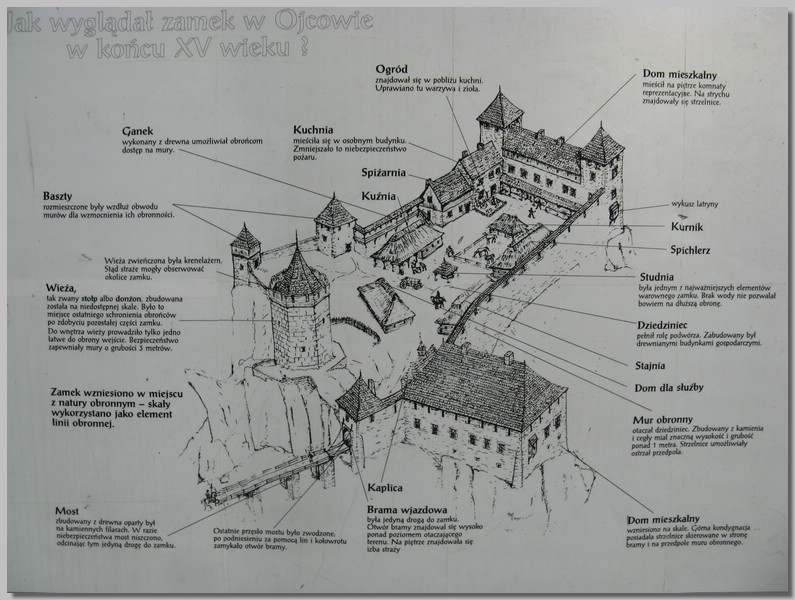 Jak wyglądał zamek w Ojcowie
w końcu XV wieku ?
Ogród
znajdował się w pobliżu kuchni.
Uprawiano tu warzywa i zioła.
Dom mieszkalny
mieścił na piętrze komnaty
reprezentacyjne. Na strychu
znajdowały się strzelnice.
Ganek
wykonany z drewna umożliwiał obrońcom
dostęp na mury.
Kuchnia
mieściła się w osobnym budynku.
Zmniejszało to niebezpieczeństwo
pożaru.
Spiżarnia
Kuźnia
Baszty
rozmieszczone były wzdłuż obwodu
murów dla wzmocnienia ich obronności.
wykusz latryny
Kurnik
Spichlerz
Wieża zwieńczona była krenelażem.
Stąd straże mogły obserwować
okolice zamku.
Wieża,
tak zwany stołp albo donżon, zbudowana
została na niedostępnej skale. Było to
miejsce ostatniego schronienia obrońców
po zdobyciu pozostałej części zamku.
Do wnętrza wieży prowadziło tylko jedno
łatwe do obrony wejście. Bezpieczeństwo
zapewniały mury o grubości 3 metrów.
Studnia
była jednym z najważniejszych elementów
warownego zamku. Brak wody nie pozwalał
bowiem na dłuższą obronę.
Dziedziniec
pełnił rolę podwórza. Zabudowany był
drewnianymi budynkami gospodarczymi.
Stajnia
Dom dla służby
Zamek wzniesiono w miejscu
z natury obronnym – skały
wykorzystano jako element
linii obronnej.
Mur obronny
otaczał dziedziniec. Zbudowany z kamienia
i cegły miał znaczną wysokość i grubość
ponad 1 metra. Strzelnice umożliwiały
ostrzał przedpola.
Kaplica
Most
zbudowany z drewna oparty był
na kamiennych filarach. W razie
niebezpieczeństwa most niszczono,
odcinając tym jedyną drogę do zamku.
Ostatnie przęsło mostu było zwodzone;
po podniesieniu za pomocą lin i kołowrotu
zamykało otwór bramy.
Brama wjazdowa
była jedyną drogą do zamku.
Otwór bramy znajdował się wysoko
ponad poziomem otaczającego
terenu. Na piętrze znajdowała się
izba straży
Dom mieszkalny
wzniesiono na skale. Górna kondygnacja
posiadała strzelnice skierowane w stronę
bramy i na przedpole muru obronnego.